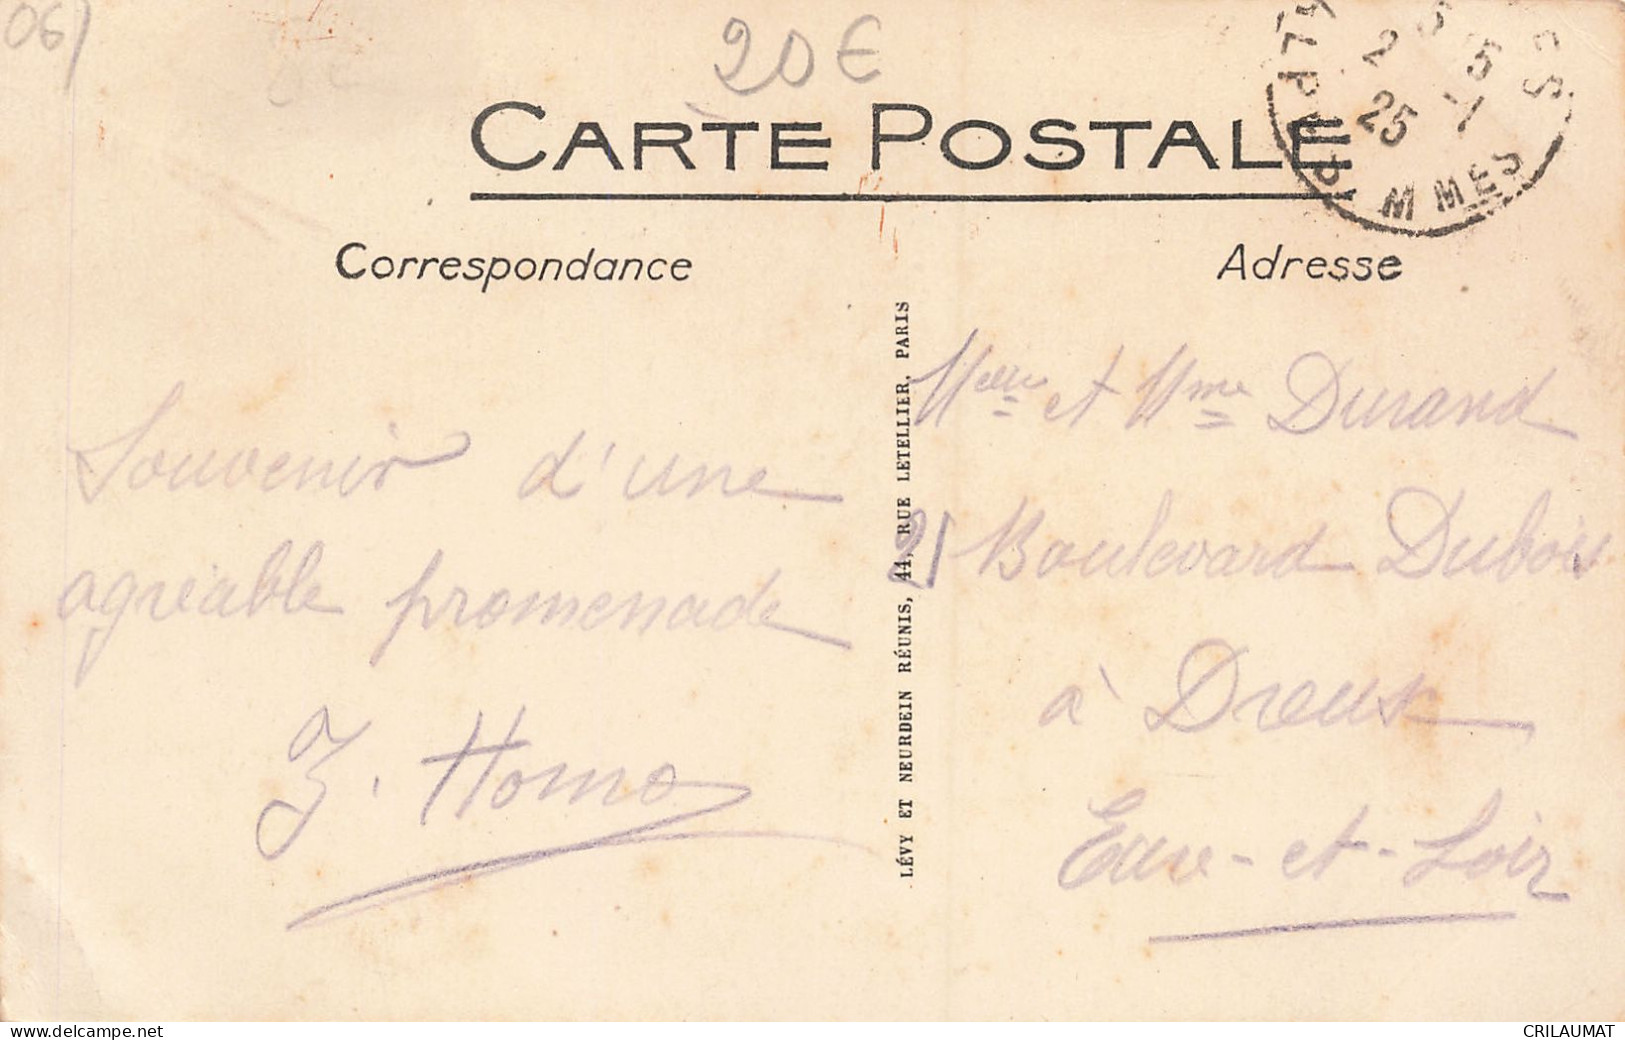 06)
20€
CARTE POSTALE
Correspondance
Adresse
25
ALPES MMES
Souvenir d'une
agréable promenade
Z. Homo
LÉVY ET NEURDEIN RÉUNIS, 44, RUE LETELLIER, PARIS
et Mme Durand
21 Boulevard Dubois
à Dreux
Eure-et-Loir
www.delcampe.net
CRILAUMAT